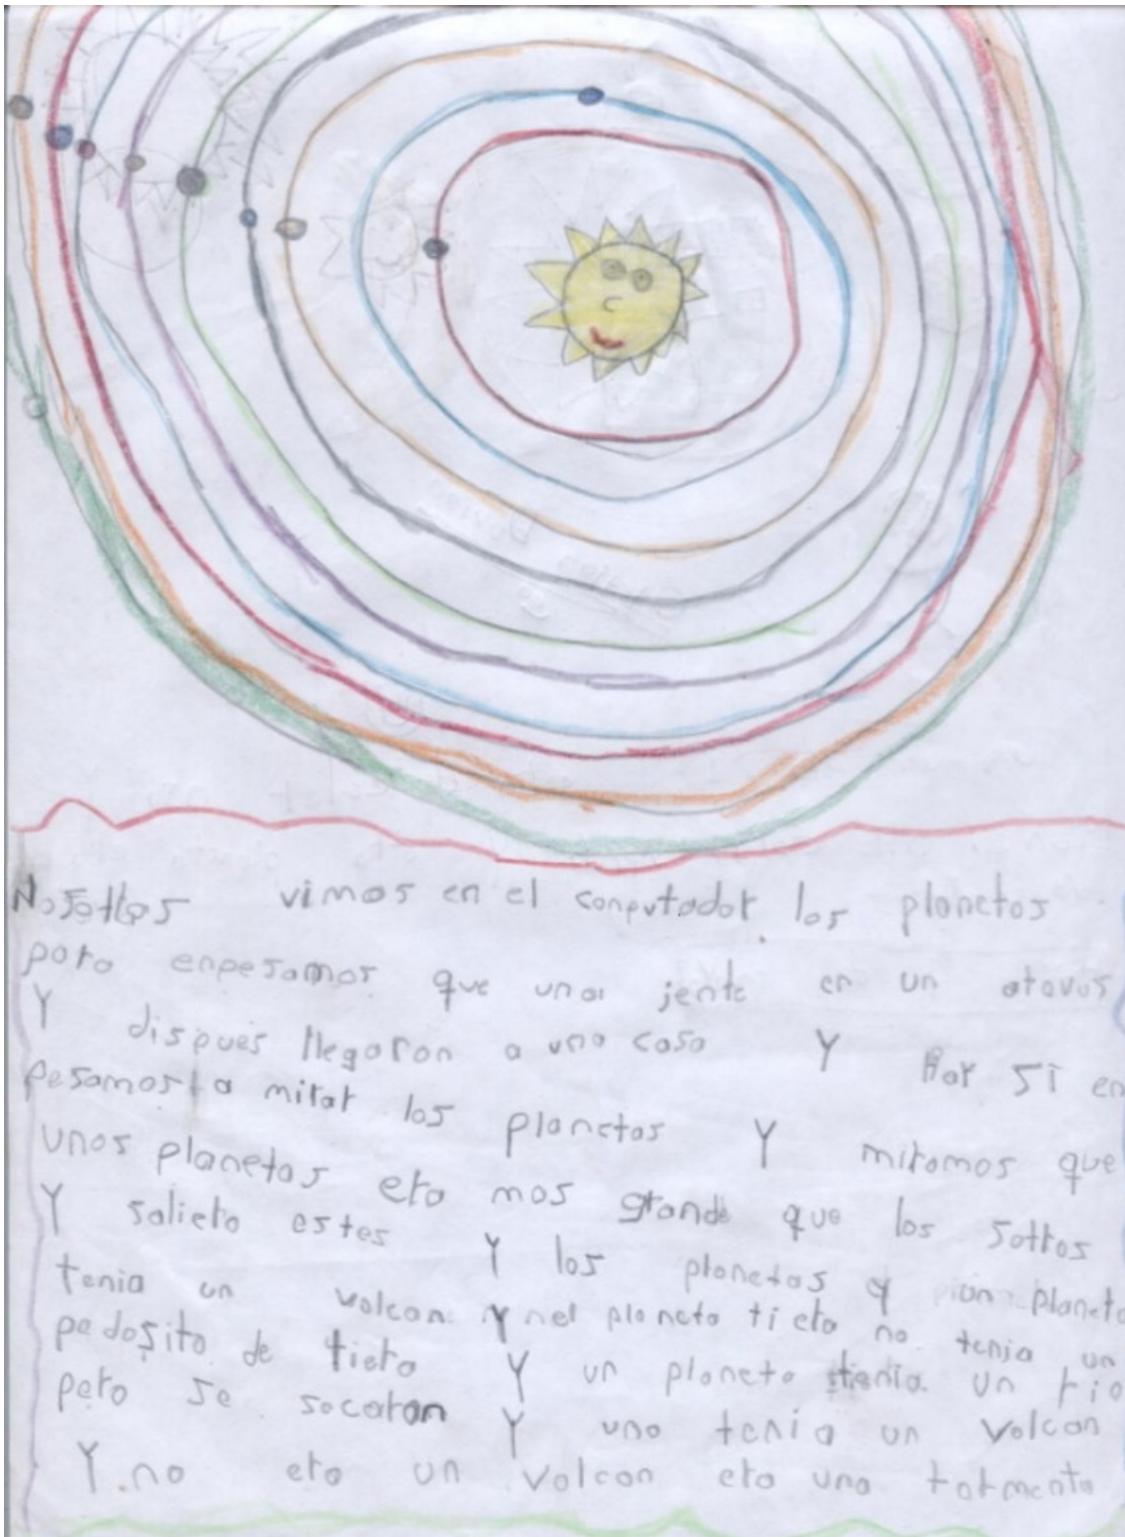 Nosottos vimos en el conputador los planetas
pora enpesamos que una jente en un atavus
Y dispues llegaron a una casa Y Hay si en
pesamos a mirar los planetas Y miramos que
unos planetas era mas grande que los sottos
Y saliero estes Y los planetas y un planeta
tenia un volcan Y nel planeta tiera no tenia un
pedosito de tiera Y un planeta tienia un rio
pero se socaran Y uno tenia un volcan
Y no era un volcan era una tormenta